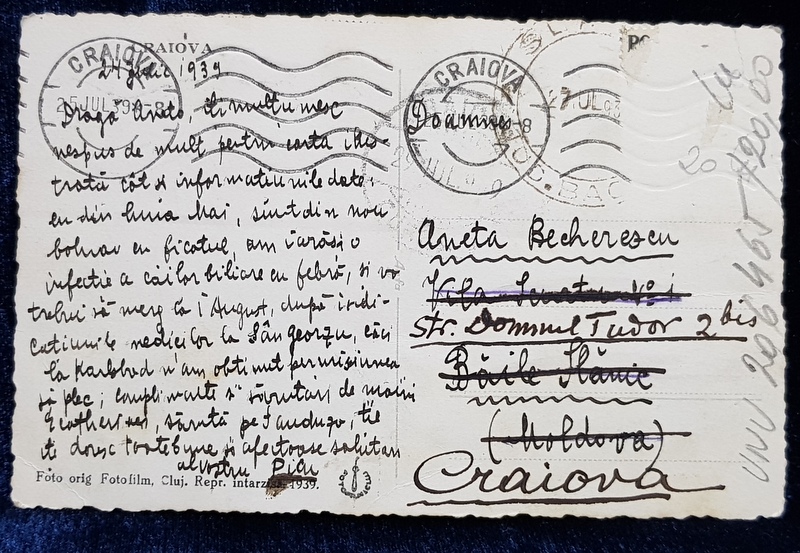 CRAIOVA
24 1939
CRAIOVA
25 JUL 39
CRAIOVA
27 JUL
Dragă Aneto, îți mulțumesc
nespus de mult pentru carta ilus-
trată cât și informațiunile date;
eu din luna Mai, sunt din nou
bolnav cu ficatul, am iarăși o
infecție a căilor biliare cu febră, și va
trebui să merg la 1 August, după indi-
cațiunile medicilor la Sângeorzu, căci
la Karlsbad n'am obținut permisiunea
să plec; complimente și sărutări de mâini
Ecaterinei, sărută pe Sanduzu, ție
îți doresc toate bune și afectoase salutări
al vostru Picu
Foto orig Fotofilm, Cluj. Repr. interzisă. 1939.
Doamnei
Aneta Becherescu
Vila Nº 1
Str. Domnul Tudor 2 bis
Băile Slănic
(Moldova)
Craiova
20